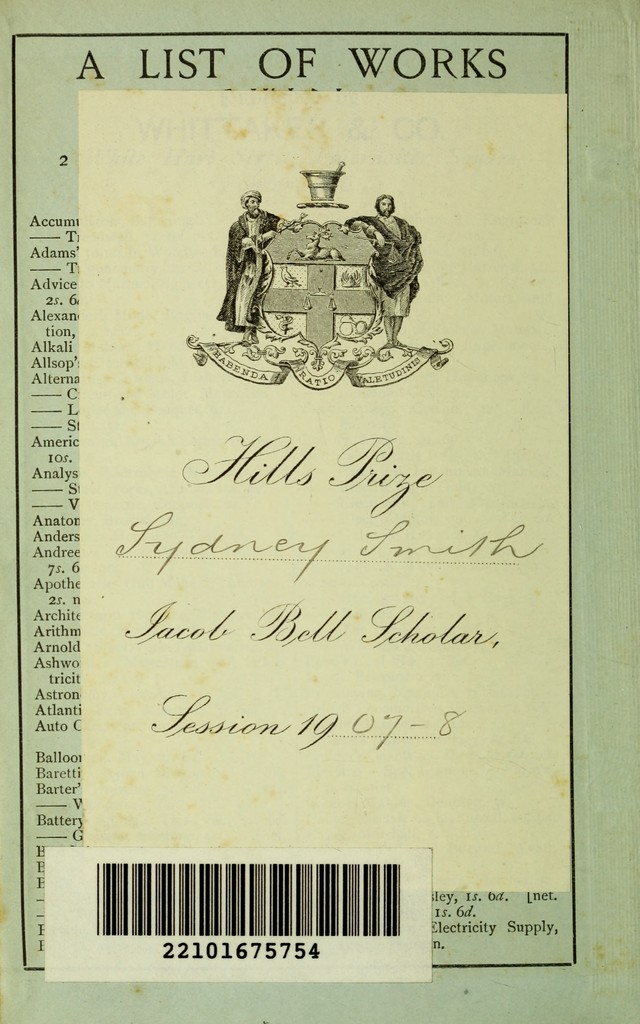 A LIST OF WORKS
2
HABENDA RATIO VALETUDINIS
Hills Prize
Sydney Smith
Jacob Bell Scholar,
Session 1907-8
Accum
— T
Adams'
— T
Advice
2s. 6
Alexan
tion,
Alkali
Allsop's
Alterna
— C
— L
— St
Americ
10s.
Analys
— S
— V
Anaton
Anders
Andree
7s. 6
Apothe
2s. n
Archite
Arithm
Arnold
Ashwo
tricit
Astron
Atlanti
Auto C
Balloo
Baretti
Barter'
— W
Battery
— G
ley, 1s. 6d. [net.
1s. 6d.
Electricity Supply,
n.
22101675754